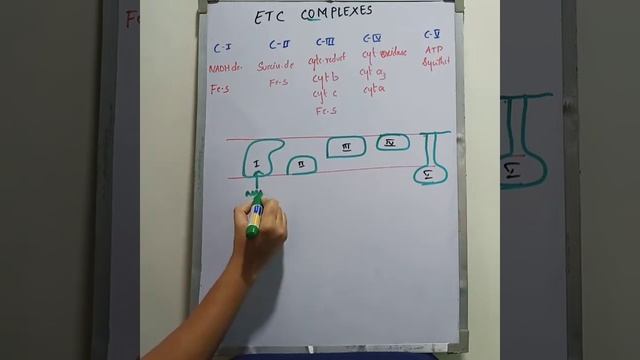 ETC COMPLEXES
C-I C-II C-III C-IV C-V
NADH de- Succin. de cytc-reduct cyt oxidase ATP
Fe-S Fe-S cyt b cyt a3 Synthet
cyt c cyt a
Fe-S
I II III IV V